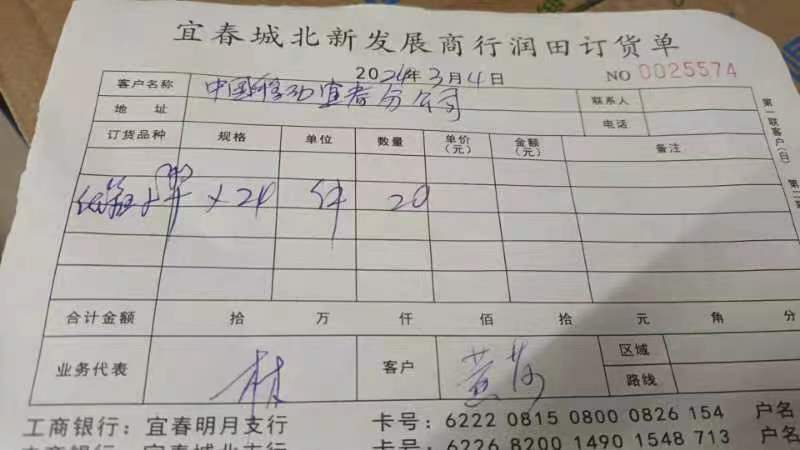 宜春城北新发展商行润田订货单
2024年3月4日 NO 0025574
客户名称 中国移动宜春分公司 联系人
地址 电话
订货品种 规格 单位 数量 单价(元) 金额(元) 备注
×24 件 20
合计金额 拾 万 仟 佰 拾 元 角 分
业务代表 林 客户 黄 区域
路线
工商银行：宜春明月支行 卡号：6222 0815 0800 0826 154 户名
宜春城北支行 卡号：6226 8200 1490 1548 713 户名
第一联客户(白) 第二联